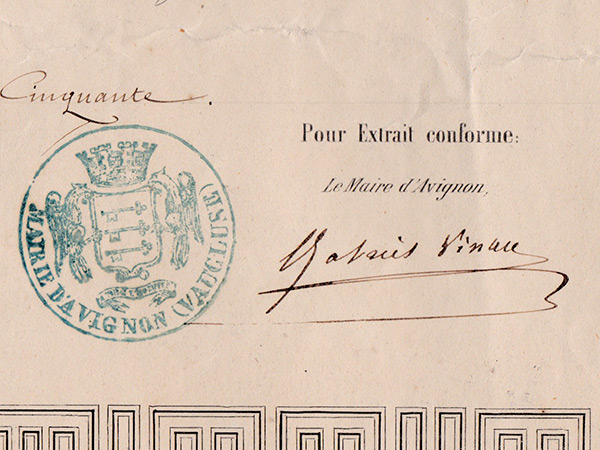 Cinquante.
Pour Extrait conforme:
Le Maire d'Avignon,
Gabriel Vinay
MAIRIE D'AVIGNON (VAUCLUSE)